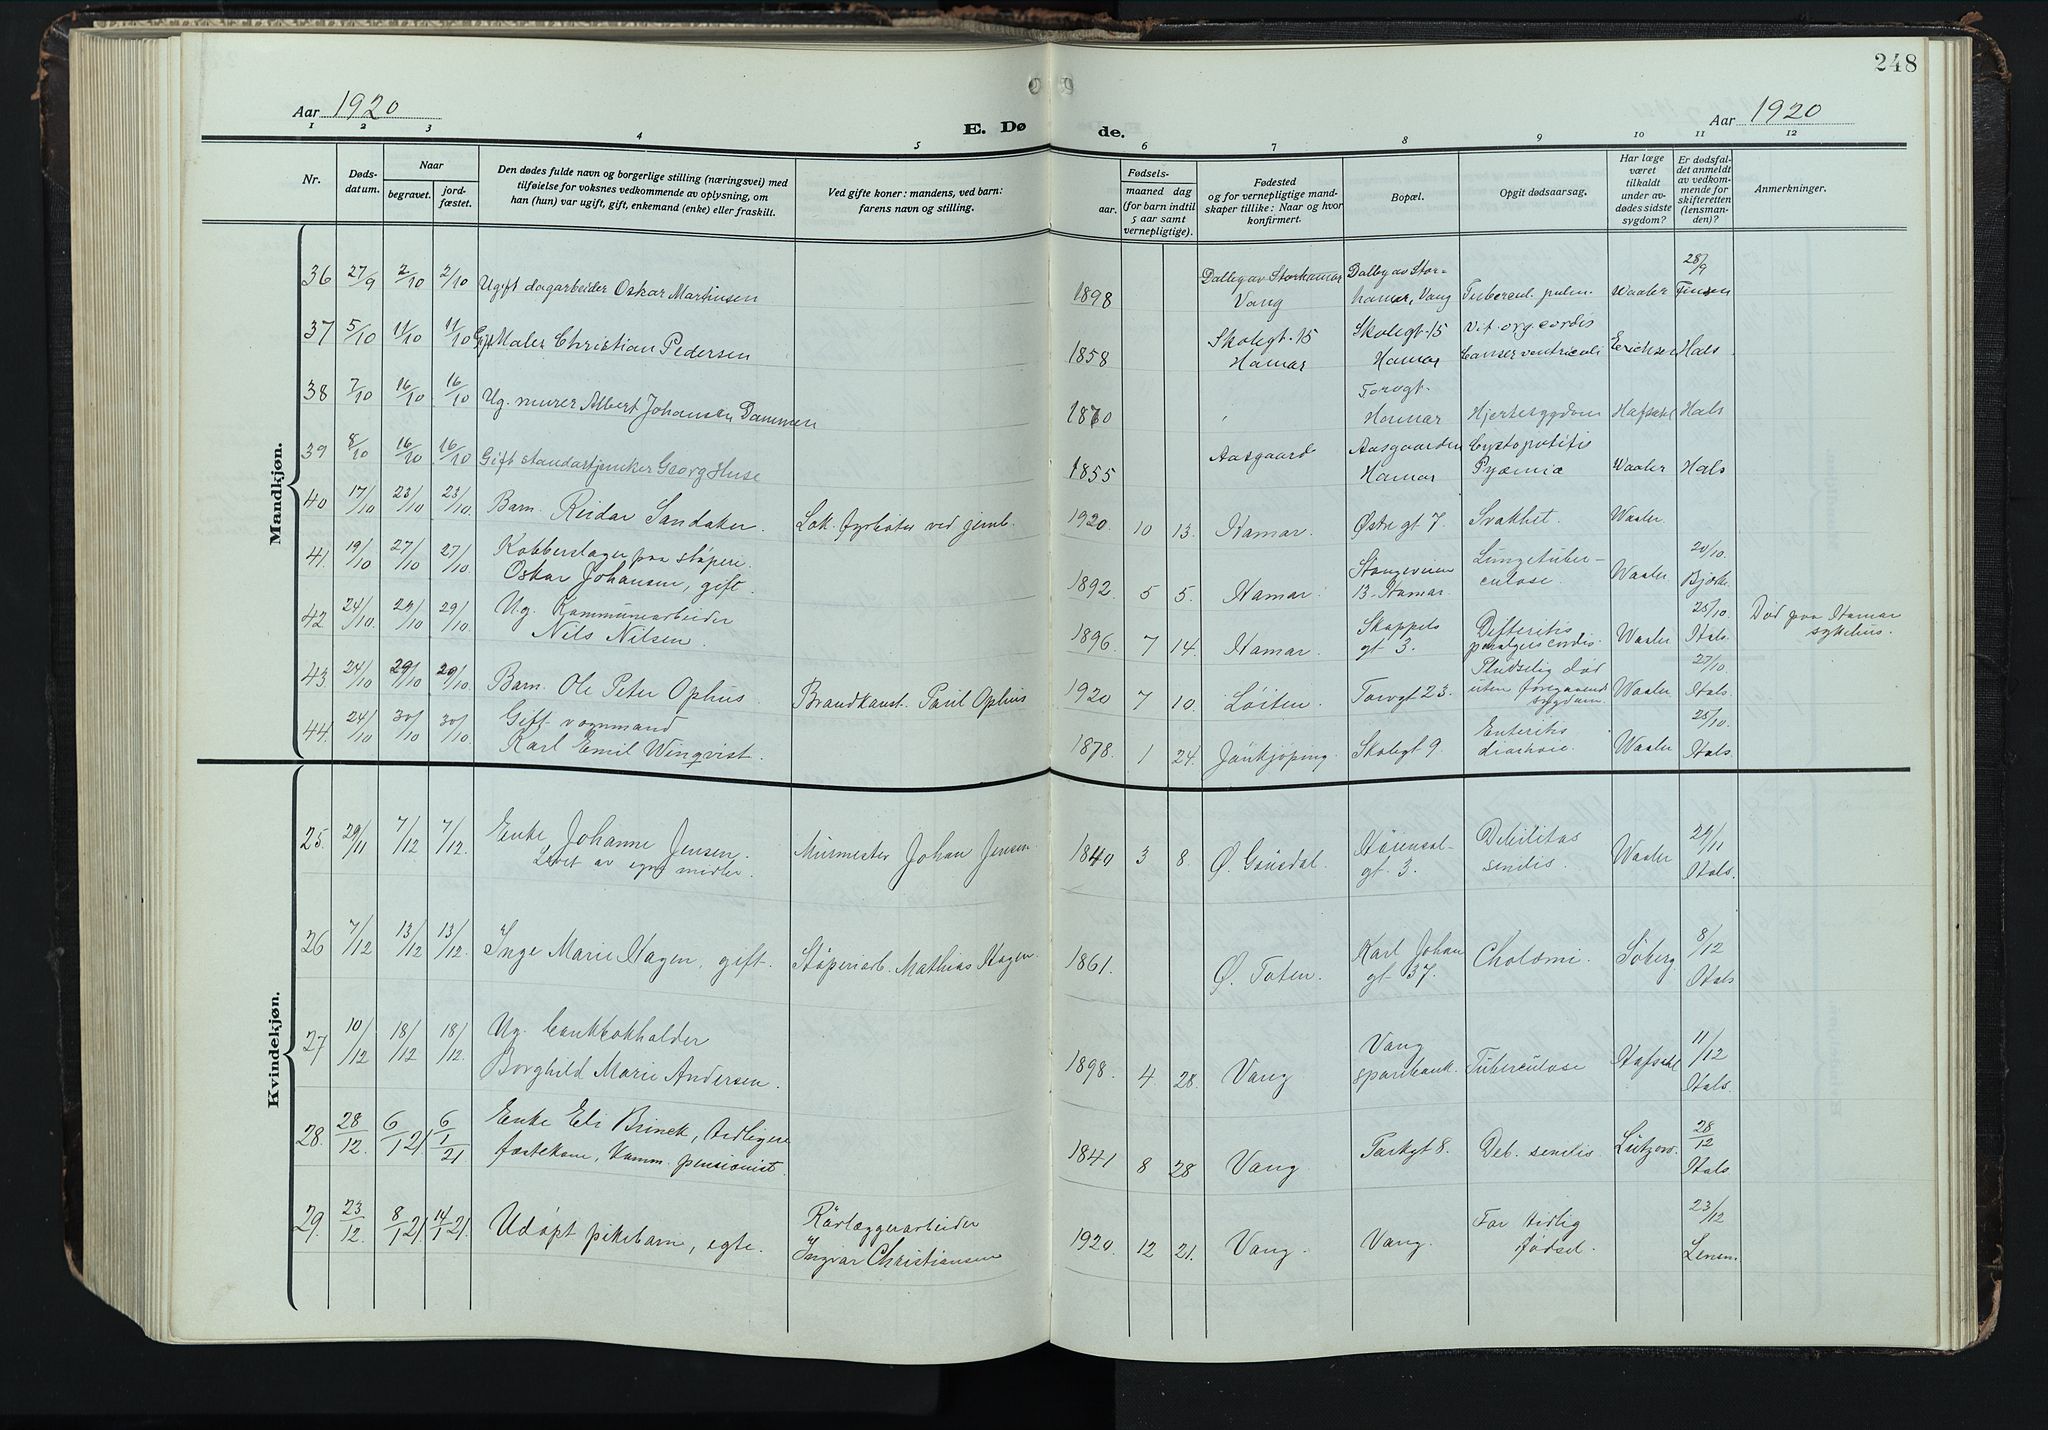 248
Aar 1920
E. Dø de.
Aar 1920
1 2 3 4 5 6 7 8 9 10 11 12
Nr.
Døds-
datum.
Naar
begravet.
jord-
fæstet.
Den dødes fulde navn og borgerlige stilling (næringsvei) med
tilføielse for voksnes vedkommende av oplysning, om
han (hun) var ugift, gift, enkemand (enke) eller fraskilt.
Ved gifte koner: mandens, ved barn:
farens navn og stilling.
Fødsels-
aar.
maaned dag
(for barn indtil
5 aar samt
vernepligtige).
Fødested
og for vernepligtige mand-
skaper tillike: Naar og hvor
konfirmert.
Bopæl.
Opgit dødsaarsag.
Har læge
været
tilkaldt
under av-
dødes sidste
sygdom?
Er dødsfal-
det anmeldt
av vedkom-
mende for
skifteretten
(lensman-
den)?
Anmerkninger.
Mandkjøn.
36 27/9 2/10 2/10 Ugift dagarbeider Oskar Martinsen 1898 Dalby av Storhamar Vang Dalby av Stor-
hamar, Vang Tubercul. pulm. Waaler 28/9
37 5/10 11/10 11/10 Gift Maler Christian Pedersen 1858 Skolegt. 15 Hamar Skolegt. 15
Hamar Vit. org. cordis
Canser ventriculi Erichsen Hals
38 7/10 16/10 16/10 Ug. murer Albert Johansen Dammen 1870 Torvgt.
Hamar Hjertesygdom Hafsahl Hals
39 8/10 16/10 16/10 Gift Georg Huse 1855 Aasgaard Aasgaarden
Hamar
Pyæmia Waaler Hals
40 17/10 23/10 23/10 Barn Reidar Sandaker. Lok. fyrbøter ved jernb. 1920. 10 13. Hamar. Østre gt 7. Svakhet. Waaler.
41. 19/10 27/10 27/10 Kobberslager paa støperi.
Oskar Johansen, gift. 1892. 5 5. Hamar. Stangeveien
13. Hamar. Lungetuber-
culose. Waaler. 20/10.
42 24/10. 29/10 29/10. Ug. Kommunearbeider
Nils Nilsen. 1896 7 14. Hamar. Skappels
gt 3. Difteritis
cordis. Waaler 25/10
Hals. Død paa Hamar
sykehus.
43. 24/10 29/10 29/10. Barn. Ole Peter Ophus Brandkonst. Paul Ophus 1920 7 10. Løiten. Torvgt 23. Pludselig død
uten foregaaende
sygdom. Waaler 27/10
Hals.
44. 24/10 30/10 30/10. Gift vognmand
Karl Emil Winqvist. 1878. 1 24. Jönkjöping. Skolegt 9. Enteritis
diarhoie. Waaler 25/10.
Hals.
Kvindekjøn.
25. 29/11 7/12 7/12. Enke Johanne Jensen.
Levet av egne midler. Murmester Johan Jensen. 1840 3 8. Ø. Gausdal.
gt. 3. Debilitas
senilis. Waaler 29/11
Hals.
26 7/12 13/12 13/12. Inge Marie Hagen, gift. Støperiarb. Mathias Hagen. 1861. Ø. Toten. Karl Johan
gt 37. Cholæmi. Søberg. 8/12
Hals
27 10/12 18/12 18/12. Ug. bankbokholder
Borghild Marie Andersen. 1898. 4 28. Vang Vang
sparebank. Tuberculose Hafsahl 11/12
Hals.
28. 28/12. 6/1 21 6/1 21 Enke Eli Brinck, tidligere
fæstekone, komm. pensionist. 1841 8 28 Vang Parkgt 8. Deb. senilis. Lützow. 28/12
Hals.
29. 23/12. 8/1 21 14/1 21. Udøpt pikebarn, egte. Rørlæggerarbeider
Ingvar Christiansen 1920. 12 21. Vang. Vang. For tidlig
fødsel. 23/12
Lensm.